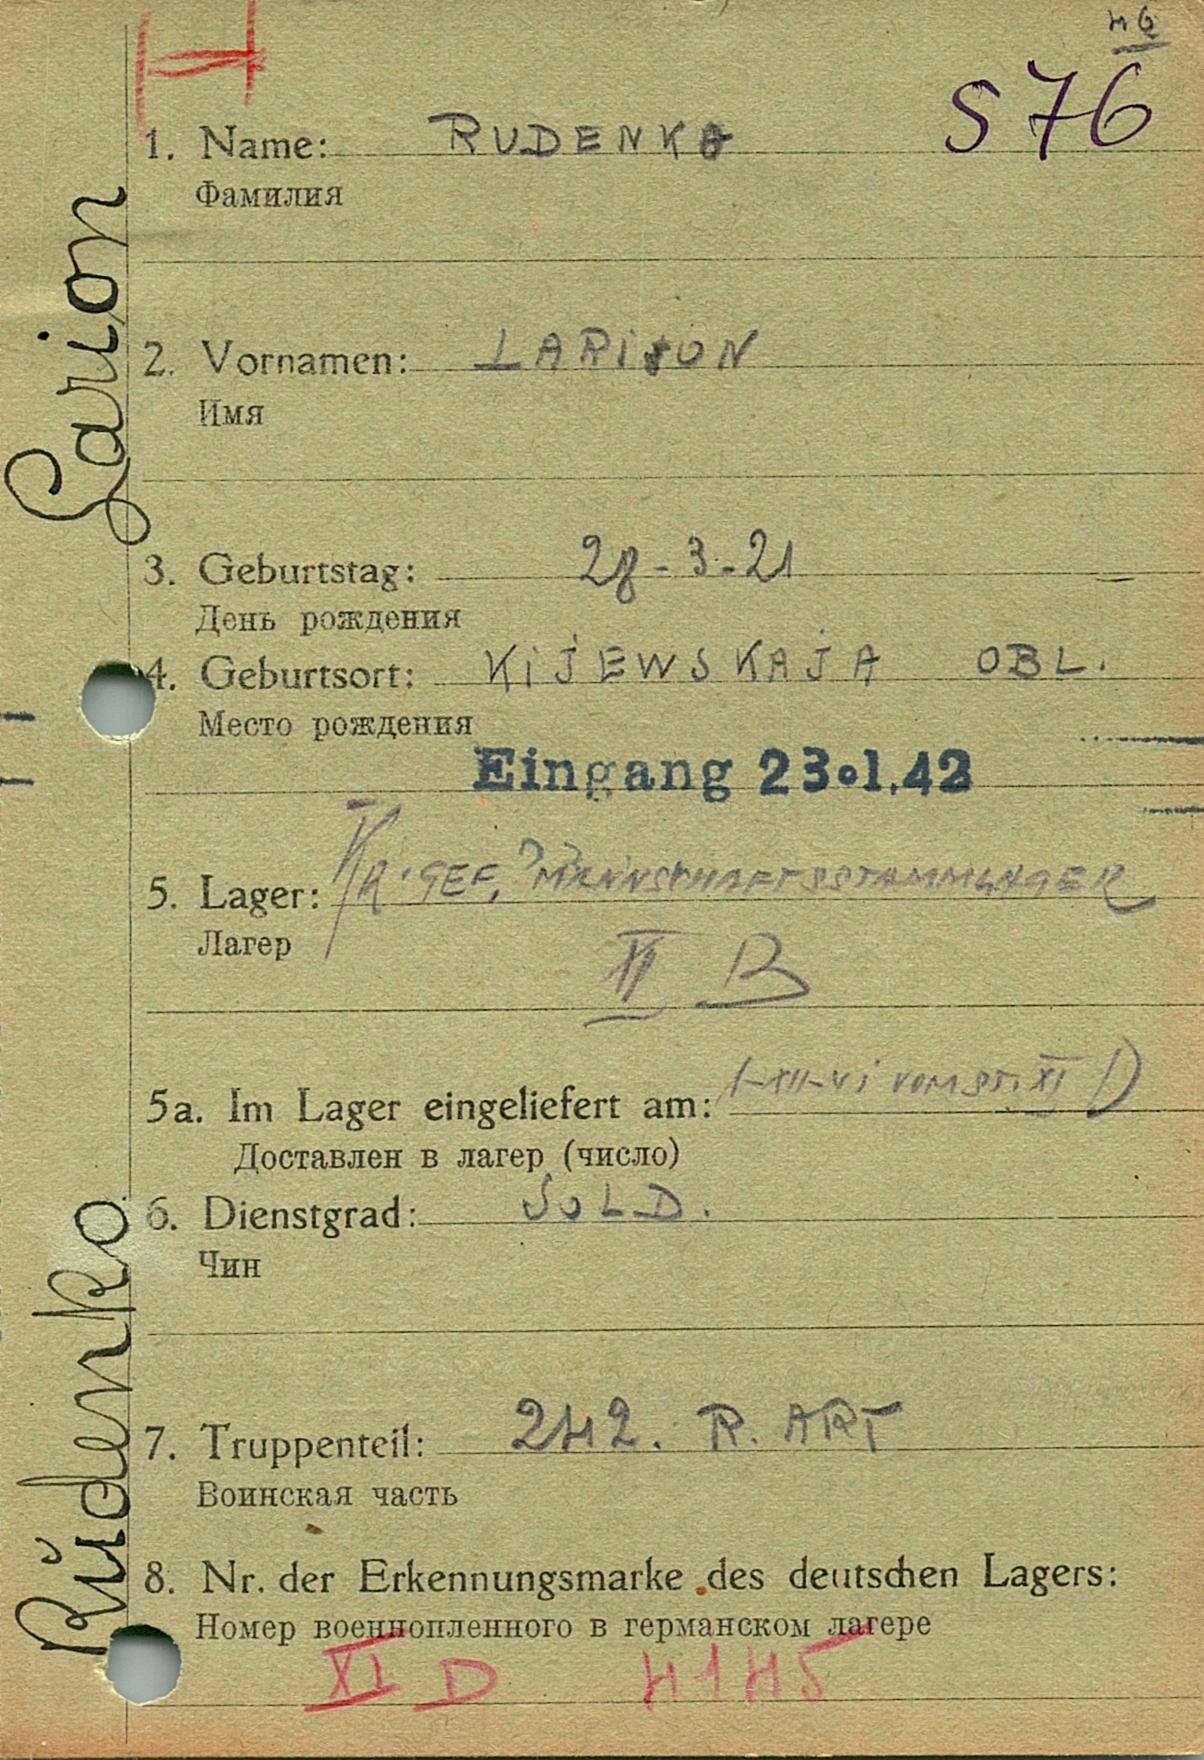 46
S 76
1. Name: RUDENKO
Фамилия
Larion
2. Vornamen: LARiON
Имя
3. Geburtstag: 28-3-21
День рождения
4. Geburtsort: KiJEWSKAJA OBL.
Место рождения
Eingang 23.1.42
5. Lager: KR. GEF. MANNSCHAFTSSTAMMLAGER
Лагер
XI B
5a. Im Lager eingeliefert am: XI D
Доставлен в лагер (число)
6. Dienstgrad: SOLD.
Чин
Rŭdenko
7. Truppenteil: 242. R. ART
Воинская часть
8. Nr. der Erkennungsmarke des deutschen Lagers:
Номер военнопленного в германском лагере
XI D 4145